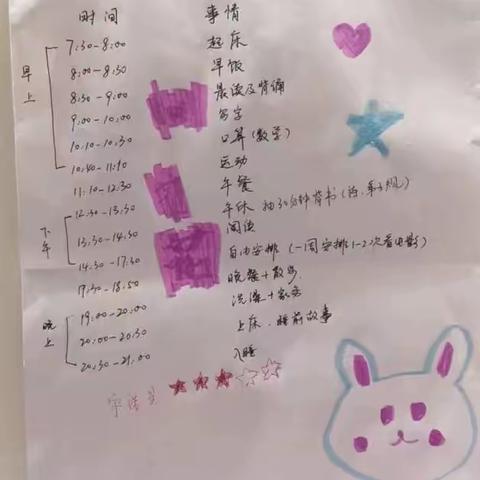 时间 事情
早上
7:30-8:00 起床
8:00-8:30 早饭
8:30-9:00 晨读及背诵
9:00-10:00 写字
10:10-10:30 口算(数学)
10:40-11:10 运动
11:10-12:30 午餐
下午
12:30-13:30 午休 抽30分钟背书(西、弟子规)
13:30-14:30 阅读
14:30-17:30 自由安排(一周安排1-2次看电影)
17:30-18:50 晚餐+散步
晚上
19:00-20:00 洗澡+家务
20:00-20:30 上床、睡前故事
20:30-21:00 入睡